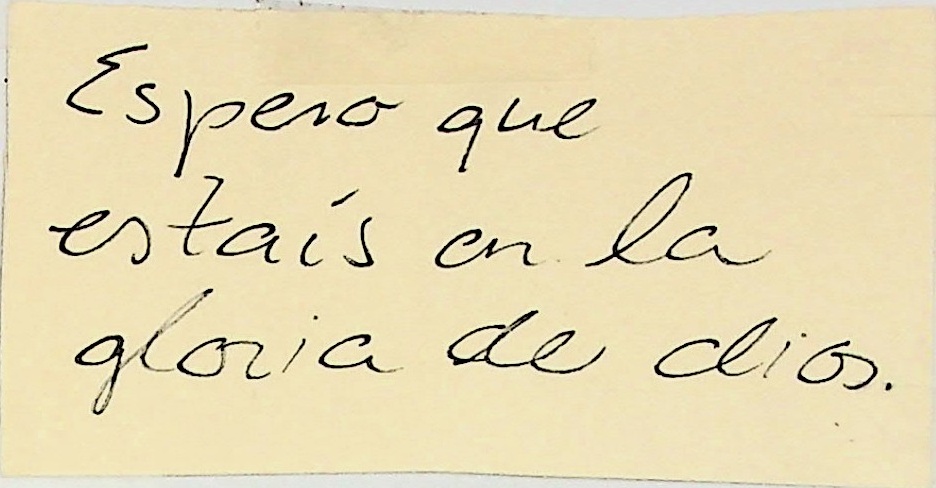 Espero que
estaís en la
gloria de dios.